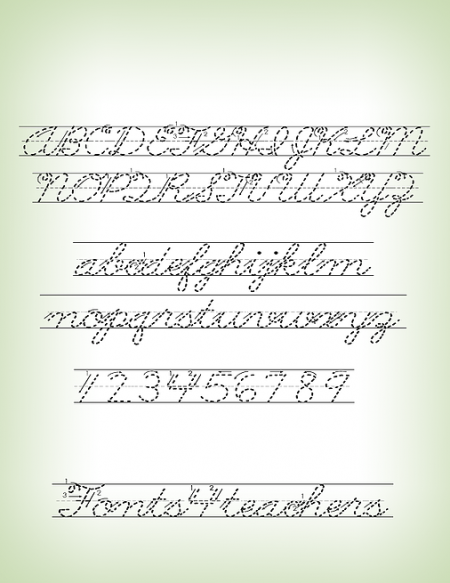 ABCDEFGHIJKLM
NOPQRSTUVWXYZ
abcdefghijklm
nopqrstuvwxyz
123456789
Fonts4teachers